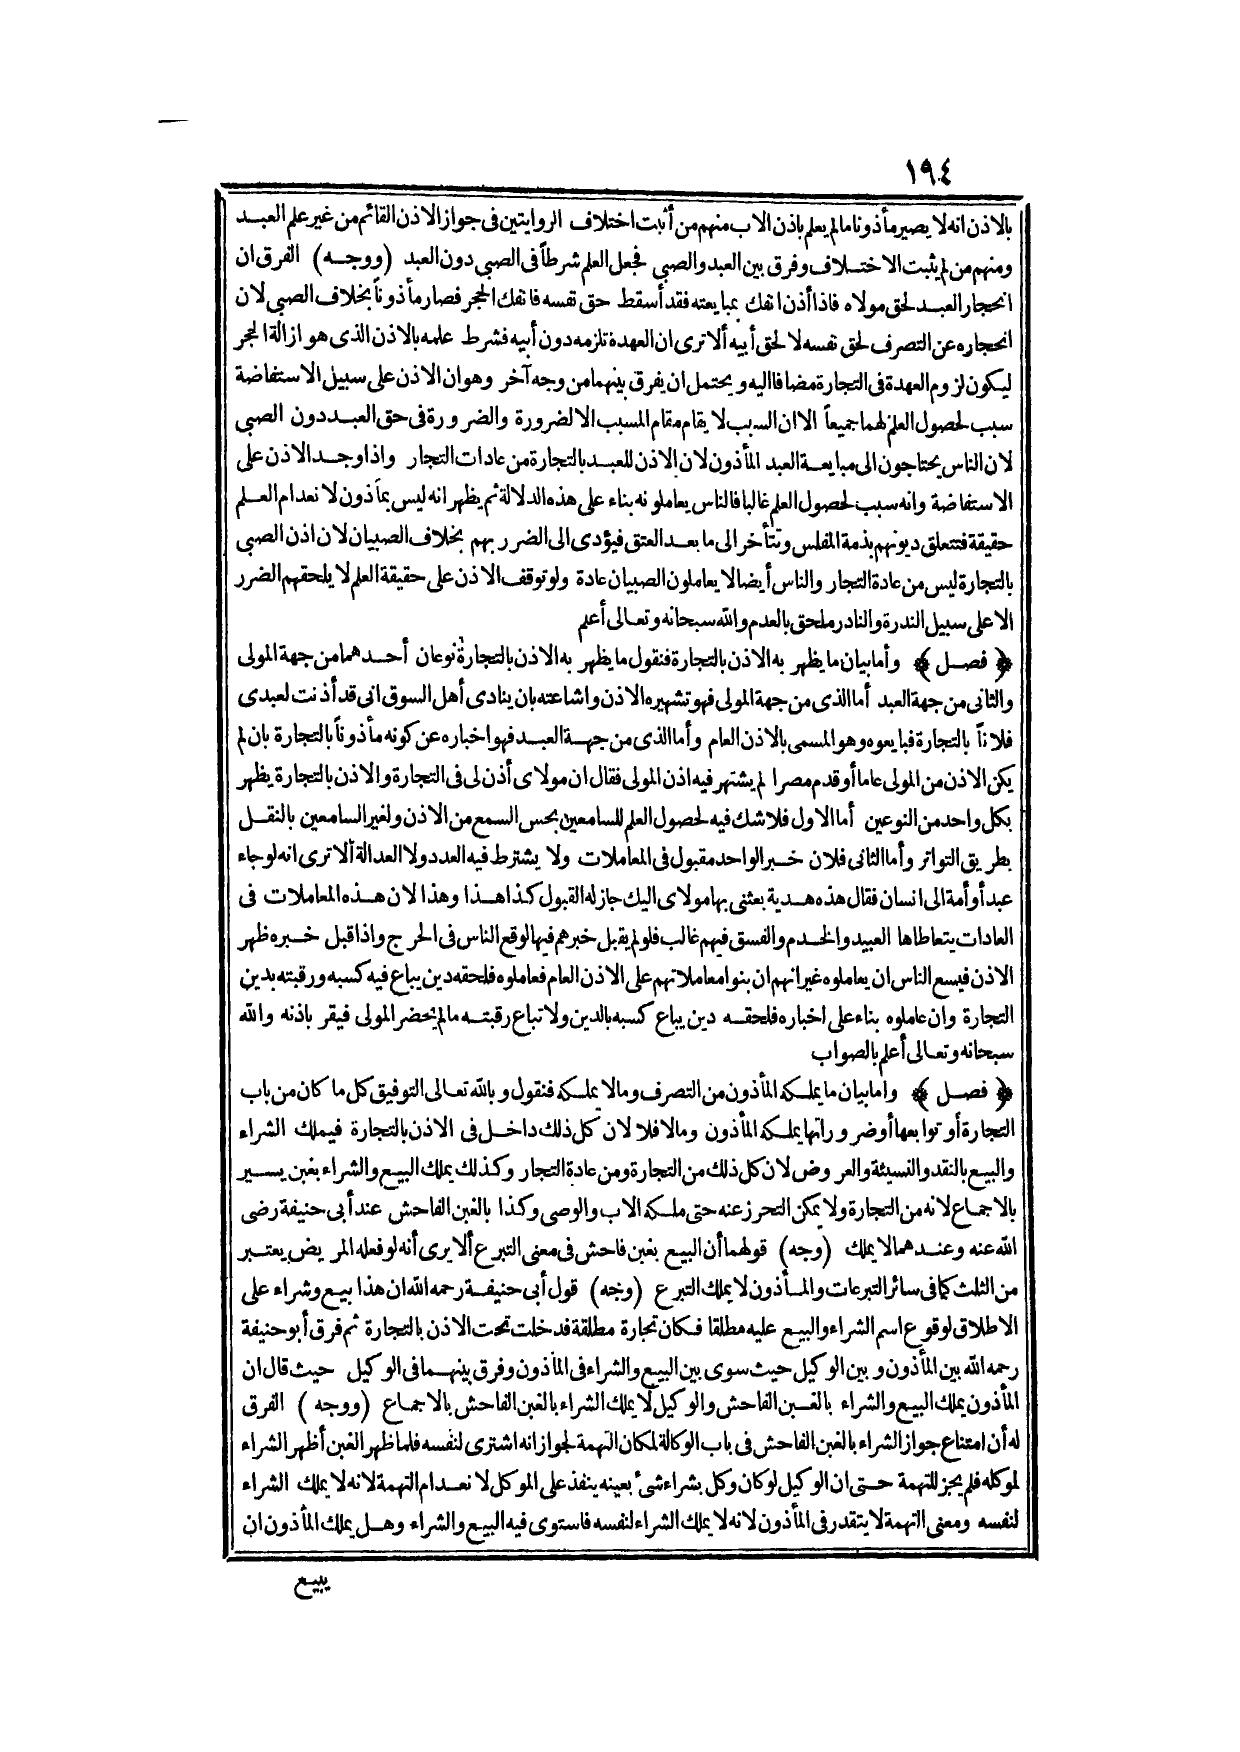 ١٩٤
بالاذن انه لا يصير مأذونا مالم يعلم باذن الاب منهم من أثبت اختلاف الروايتين فى جواز الاذن القائم من غير علم العبد
ومنهم من لم يثبت الاختلاف وفرق بين العبد والصبى فجعل العلم شرطاً فى الصبى دون العبد (ووجه) الفرق ان
انحجار العبد لحق مولاه فاذا أذن انفك بمبايعته فقد أسقط حق نفسه فانفك الحجر فصار مأذوناً بخلاف الصبى لان
انحجاره عن التصرف لحق نفسه لا لحق أبيه ألا ترى ان العهدة تلزمه دون أبيه فشرط علمه بالاذن الذى هو ازالة الحجر
ليكون لزوم العهدة فى التجارة مضافا اليه ويحتمل ان يفرق بينهما من وجه آخر وهو ان الاذن على سبيل الاستفاضة
سبب لحصول العلم لهما جميعاً الا ان السبب لا يقام مقام المسبب الا لضرورة والضرورة فى حق العبد دون الصبى
لان الناس يحتاجون الى مبايعة العبد المأذون لان الاذن للعبد بالتجارة من عادات التجار واذا وجد الاذن على
الاستفاضة وانه سبب لحصول العلم غالبا فالناس يعاملونه بناء على هذه الدلالة ثم يظهر انه ليس بمأذون لانعدام العلم
حقيقة فتتعلق ديونهم بذمة المفلس وتتأخر الى ما بعد العتق فيؤدى الى الضرر بهم بخلاف الصبيان لان اذن الصبى
بالتجارة ليس من عادة التجار والناس أيضا لا يعاملون الصبيان عادة ولو توقف الاذن على حقيقة العلم لا يلحقهم الضرر
الا على سبيل الندرة والنادر ملحق بالعدم والله سبحانه وتعالى أعلم
﴿ فصل ﴾ وأما بيان ما يظهر به الاذن بالتجارة فنقول ما يظهر به الاذن بالتجارة نوعان أحدهما من جهة المولى
والثانى من جهة العبد أما الذى من جهة المولى فهو تشهيره الاذن واشاعته بان ينادى أهل السوق انى قد أذنت لعبدى
فلاناً بالتجارة فبايعوه وهو المسمى بالاذن العام وأما الذى من جهة العبد فهو اخباره عن كونه مأذوناً بالتجارة بان لم
يكن الاذن من المولى عاما أو قدم مصرا لم يشتهر فيه اذن المولى فقال ان مولاى أذن لى فى التجارة والاذن بالتجارة يظهر
بكل واحد من النوعين أما الاول فلا شك فيه لحصول العلم للسامعين بحس السمع من الاذن ولغير السامعين بالنقل
بطريق التواتر وأما الثانى فلان خبر الواحد مقبول فى المعاملات ولا يشترط فيه العدد ولا العدالة ألا ترى انه لو جاء
عبد أو أمة الى انسان فقال هذه هدية بعثنى بها مولاى اليك جاز له القبول كذا هذا وهذا لان هذه المعاملات فى
العادات يتعاطاها العبيد والخدم والفسق فيهم غالب فلو لم يقبل خبرهم فيها لوقع الناس فى الحرج واذا قبل خبره ظهر
الاذن فيسع الناس ان يعاملوه غير انهم ان بنوا معاملاتهم على الاذن العام فعاملوه فلحقه دين يباع فيه كسبه ورقبته بدين
التجارة وان عاملوه بناء على اخباره فلحقه دين يباع كسبه بالدين ولا تباع رقبته مالم يحضر المولى فيقر باذنه والله
سبحانه وتعالى أعلم بالصواب
﴿ فصل ﴾ وامابيان ما يملكه المأذون من التصرف وما لا يملكه فنقول وبالله تعالى التوفيق كل ما كان من باب
التجارة أو توابعها أو ضروراتها يملكه المأذون ومالا فلا لان كل ذلك داخل فى الاذن بالتجارة فيملك الشراء
والبيع بالنقد والنسيئة والعروض لان كل ذلك من التجارة ومن عادة التجار وكذلك يملك البيع والشراء بغبن يسير
بالاجماع لانه من التجارة ولا يمكن التحرز عنه حتى ملكه الاب والوصى وكذا بالغبن الفاحش عند أبى حنيفة رضى
الله عنه وعندهما لا يملك (وجه) قولهما أن البيع بغبن فاحش فى معنى التبرع ألا يرى أنه لو فعله المريض يعتبر
من الثلث كما فى سائر التبرعات والمأذون لا يملك التبرع (وجه) قول أبى حنيفة رحمه الله ان هذا بيع وشراء على
الاطلاق لوقوع اسم الشراء والبيع عليه مطلقا فكان تجارة مطلقة فدخلت تحت الاذن بالتجارة ثم فرق أبو حنيفة
رحمه الله بين المأذون وبين الوكيل حيث سوى بين البيع والشراء فى المأذون وفرق بينهما فى الوكيل حيث قال ان
المأذون يملك البيع والشراء بالغبن الفاحش والوكيل لا يملك الشراء بالغبن الفاحش بالاجماع (ووجه) الفرق
له أن امتناع جواز الشراء بالغبن الفاحش فى باب الوكالة لمكان التهمة لجواز انه اشترى لنفسه فلما ظهر الغبن أظهر الشراء
لموكله فلم يجز للتهمة حتى ان الوكيل لو كان وكل بشراء شئ بعينه ينفذ على الموكل لانعدام التهمة لانه لا يملك الشراء
لنفسه ومعنى التهمة لا يتقدر فى المأذون لانه لا يملك الشراء لنفسه فاستوى فيه البيع والشراء وهل يملك المأذون ان
يبيع